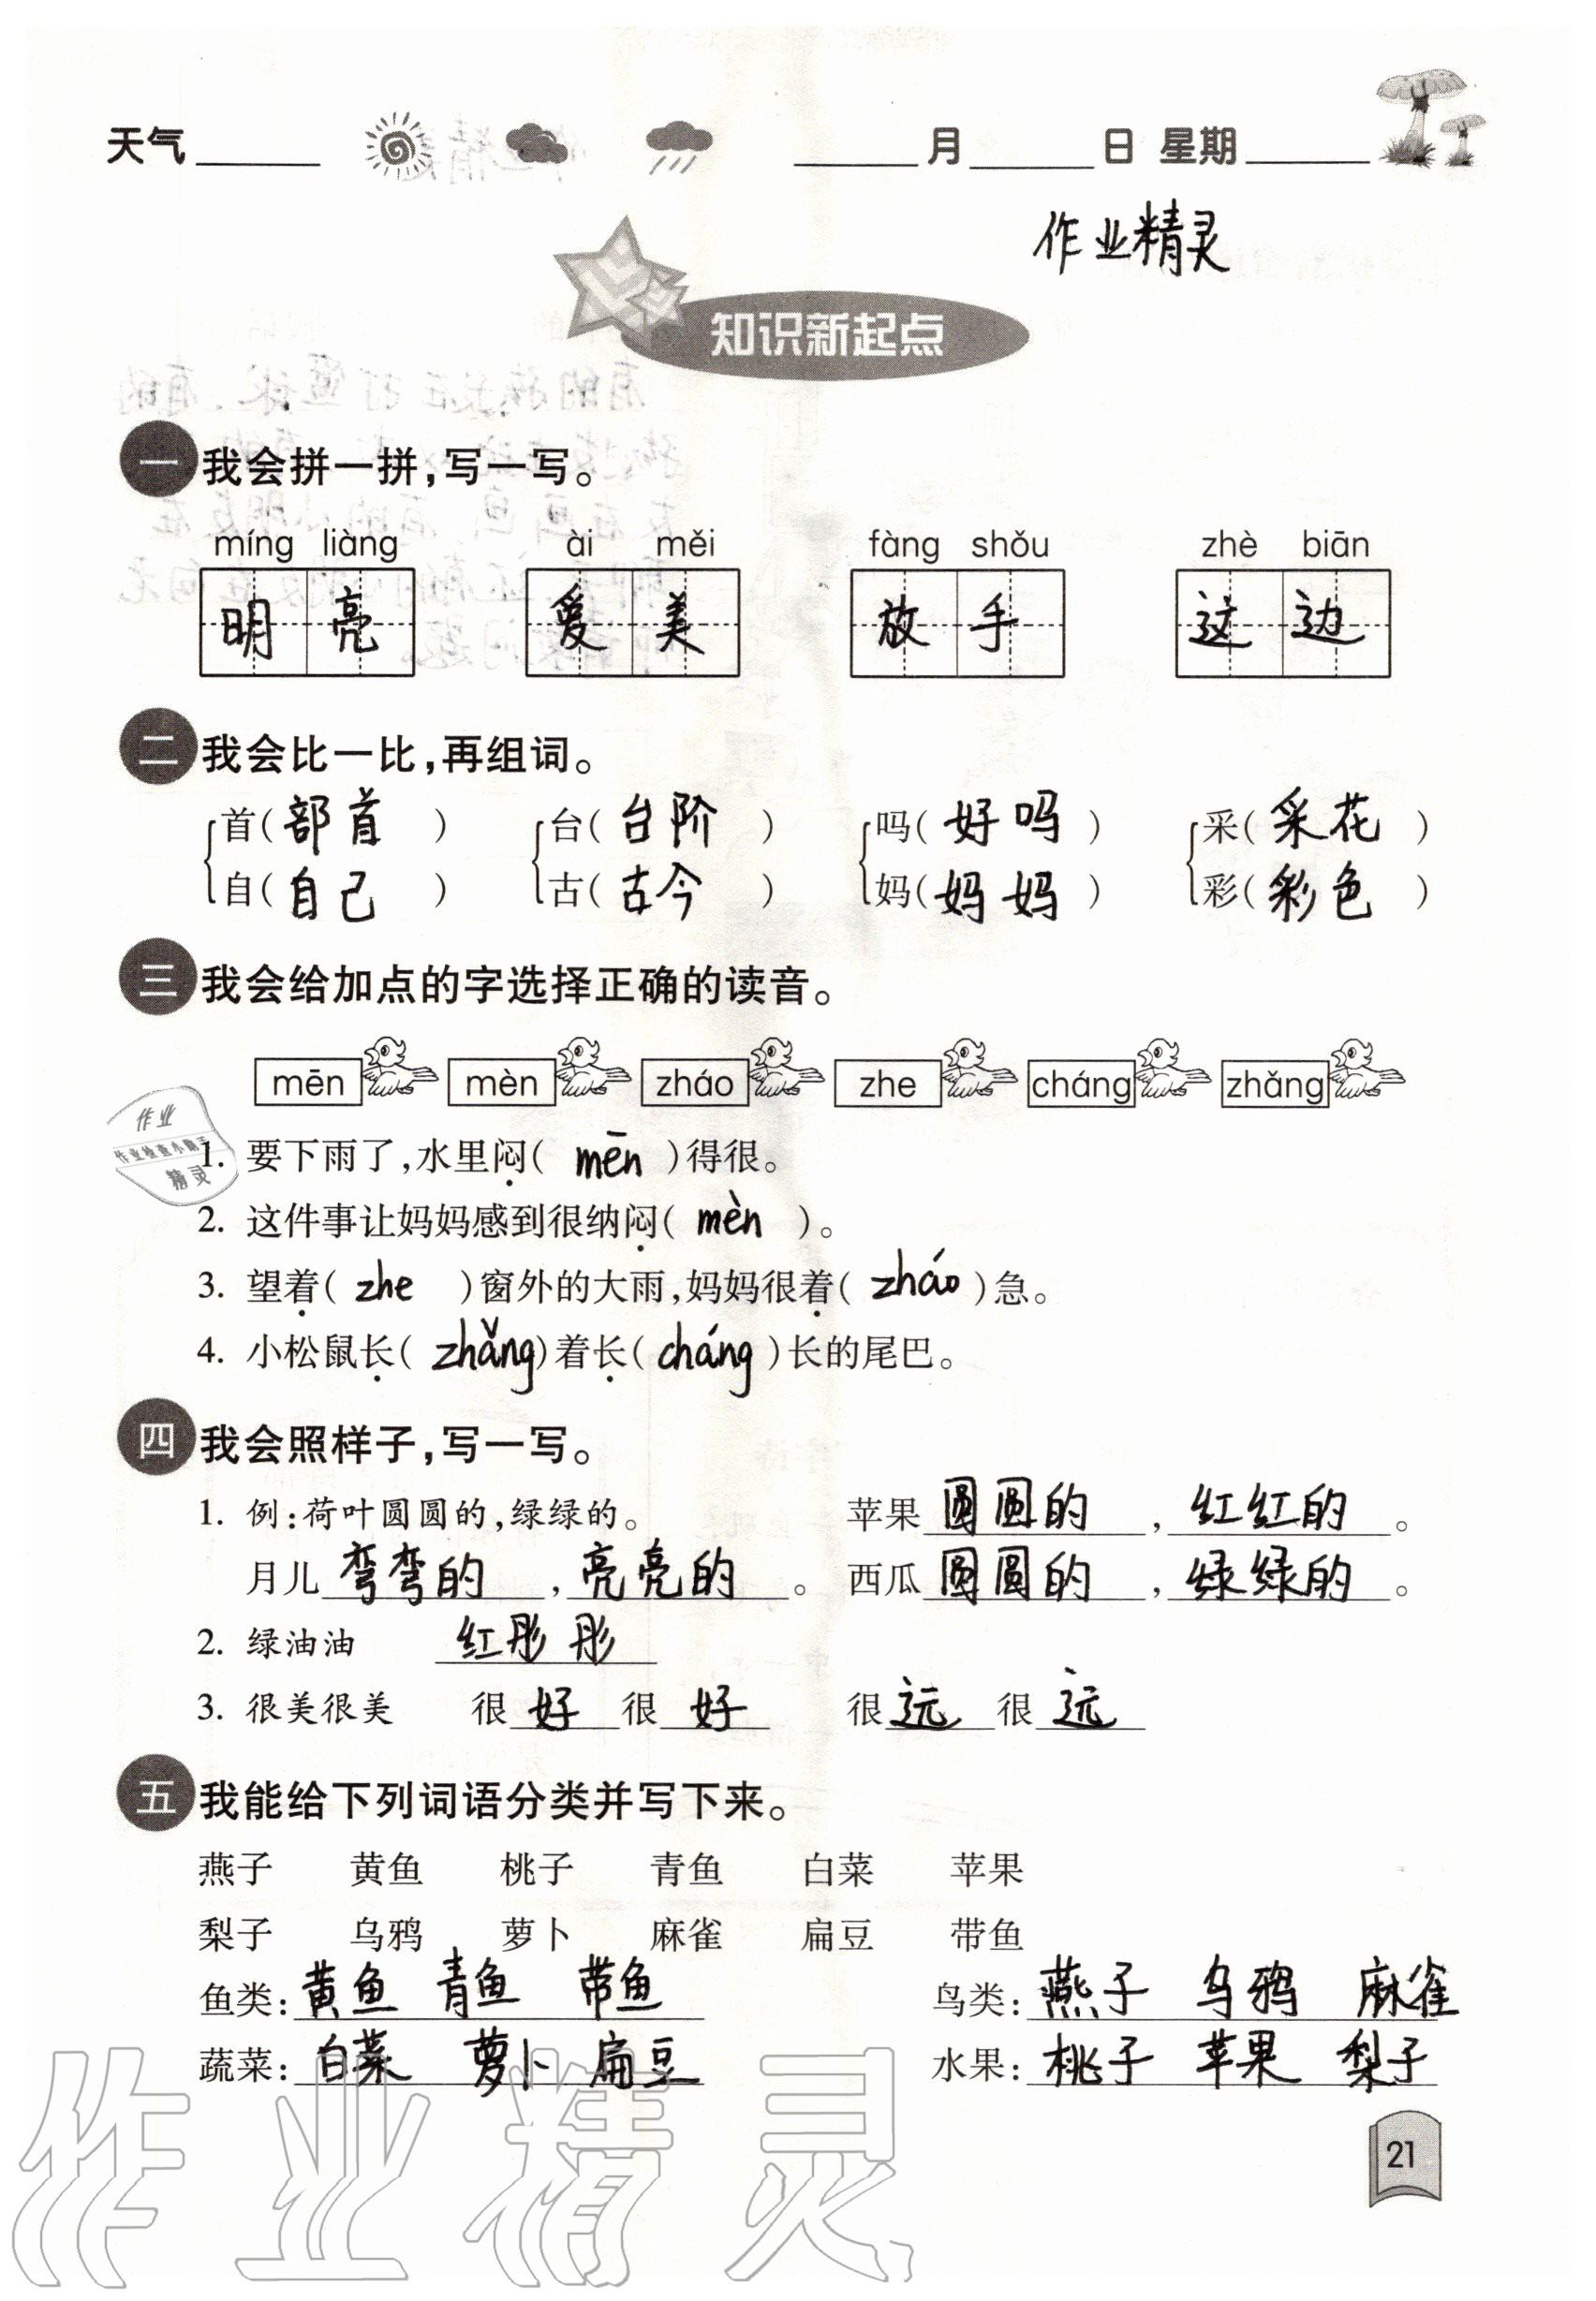 天气______ ______月______日 星期______
作业精灵
知识新起点
一 我会拼一拼,写一写。
míng liàng ài měi fàng shǒu zhè biān
明亮 爱美 放手 这边
二 我会比一比,再组词。
首(部首) 台(台阶) 吗(好吗) 采(采花)
自(自己) 古(古今) 妈(妈妈) 彩(彩色)
三 我会给加点的字选择正确的读音。
mēn mèn zháo zhe cháng zhǎng
作业
作业检查小助手
精灵
1. 要下雨了,水里闷(mēn)得很。
2. 这件事让妈妈感到很纳闷(mèn)。
3. 望着(zhe)窗外的大雨,妈妈很着(zháo)急。
4. 小松鼠长(zhǎng)着长(cháng)长的尾巴。
四 我会照样子,写一写。
1. 例:荷叶圆圆的,绿绿的。 苹果圆圆的,红红的。
月儿弯弯的,亮亮的。 西瓜圆圆的,绿绿的。
2. 绿油油 红彤彤
3. 很美很美 很好很好 很远很远
五 我能给下列词语分类并写下来。
燕子 黄鱼 桃子 青鱼 白菜 苹果
梨子 乌鸦 萝卜 麻雀 扁豆 带鱼
鱼类:黄鱼 青鱼 带鱼 鸟类:燕子 乌鸦 麻雀
蔬菜:白菜 萝卜 扁豆 水果:桃子 苹果 梨子
作业精灵
21